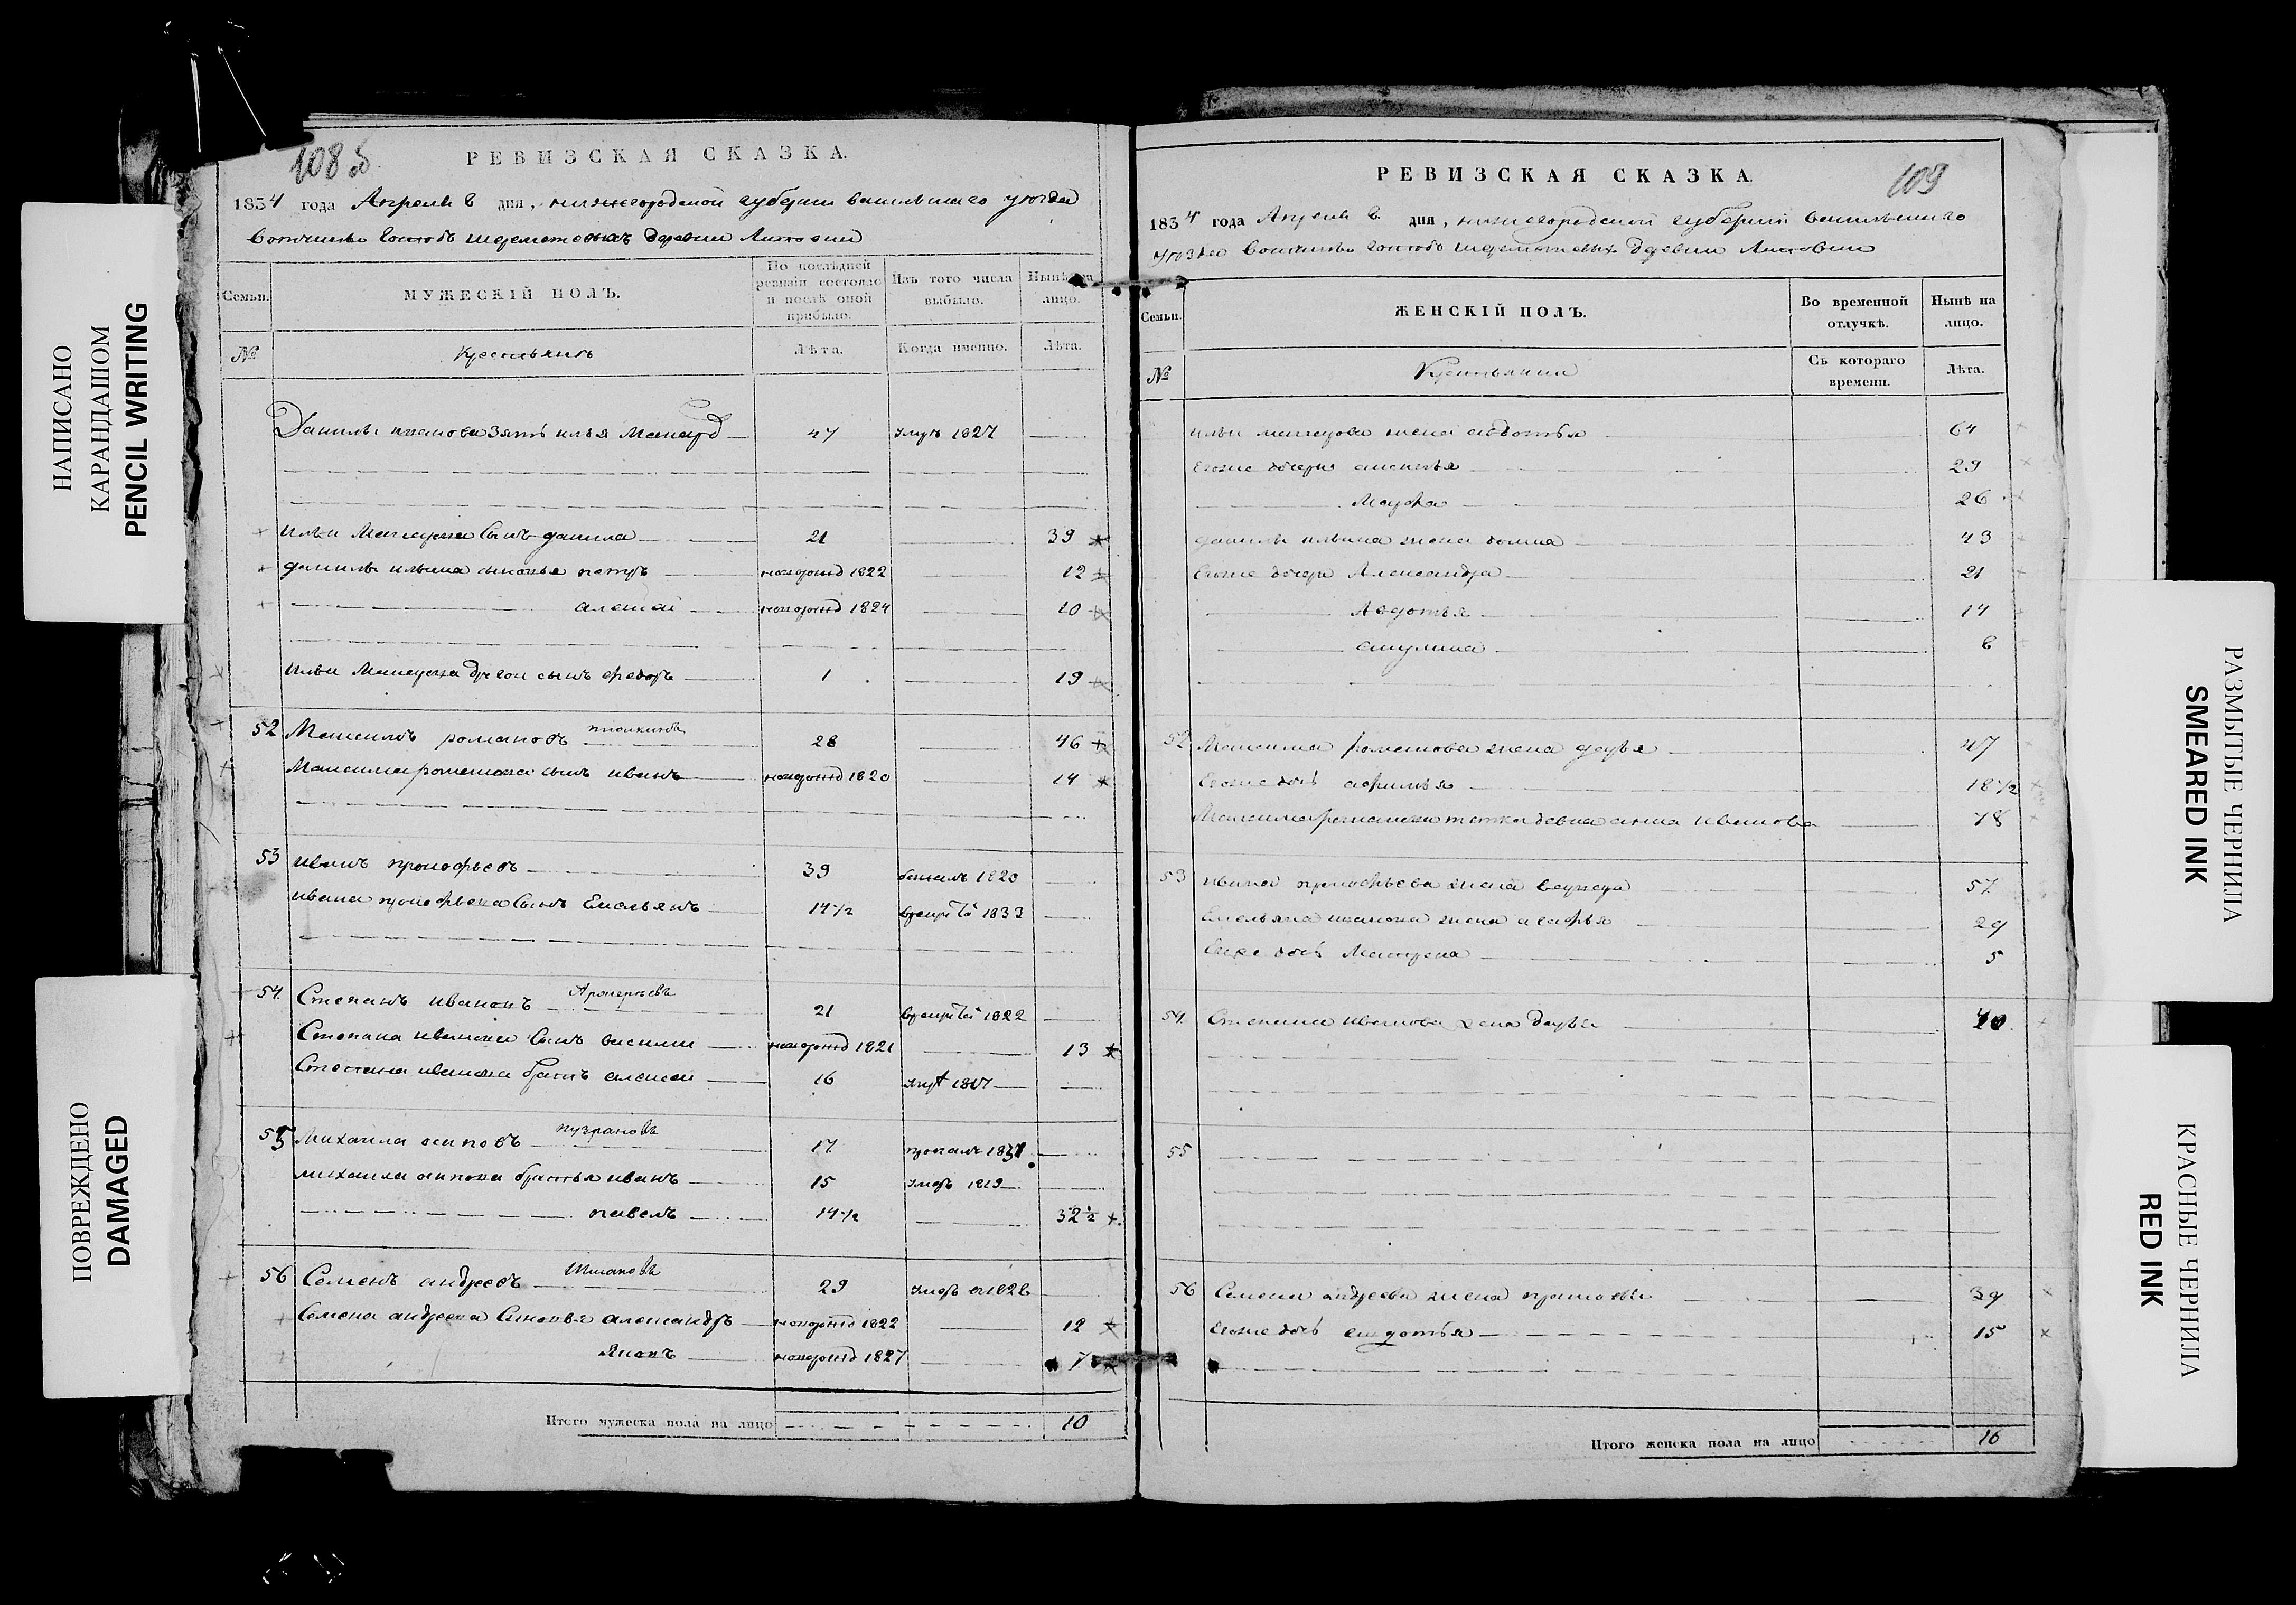 НАПИСАНО
КАРАНДАШОМ
PENCIL WRITING
ПОВРЕЖДЕНО
DAMAGED
108 об.
РЕВИЗСКАЯ СКАЗКА.
1834 года Апреля дня, нижегородской губернии васильскаго уезда
вотчины Господъ шереметевыхъ деревни
Семьи. МУЖЕСКІЙ ПОЛЪ. По послѣдней ревизіи состояло и послѣ оной прибыло. Изъ того числа выбыло. Нынѣ на лицо.
№ Крестьянъ Лѣта. Когда именно. Лѣта.
Данилы иванова зять илья 47 1827
ильи сынъ данила 21 39
данилы ильина сыновья петръ новорожд 1822 12
алексей новорожд 1824 10
ильи другой сынъ федоръ 1 19
52 Максимъ романовъ 28 46
Максима романова сынъ иванъ новорожд 1820 14
53 иванъ прокофьевъ 39 1820
ивана прокофьева сынъ Емельянъ 14 1/2 1833
54. Степанъ ивановъ 21 1822
Степана иванова сынъ василий новорожд 1821 13
Степана иванова братъ алексей 16
55 Михайла осиповъ пузрановъ 17 пропалъ
михайла осипова братья иванъ 15 умеръ 1819
павелъ 14 1/2 32 1/2
56 Семенъ андреевъ 29 умеръ
Семена андреева сыновья александръ новорожд 1822 12
яковъ новорожд 1827 7
Итого мужеска пола на лицо 10
РЕВИЗСКАЯ СКАЗКА. 109
1834 года Апреля дня, нижегородской губернии васильскаго
уезда вотчины господъ шереметевыхъ деревни
Семьи. ЖЕНСКІЙ ПОЛЪ. Во временной отлучкѣ. Нынѣ на лицо.
№ Крестьянки Съ котораго времени. Лѣта.
ильи жена авдотья 64
егоже дочери 29
Марфа 26
данилы ильина жена домна 43
егоже дочери Александра 21
Авдотья 14
акулина 6
52 Максима романова жена дарья 47
егоже дочь афимья 18 1/2
Максима романова тетка девка анна иванова 78
53 ивана прокофьева жена варвара 57
Емельяна иванова жена агафья 29
Ихже дочь Матрена 5
54. Степана иванова жена дарья 40
55
56 Семена андреева жена прасковья 39
егоже дочь авдотья 15
Итого женска пола на лицо 16
РАЗМЫТЫЕ ЧЕРНИЛА
SMEARED INK
КРАСНЫЕ ЧЕРНИЛА
RED INK